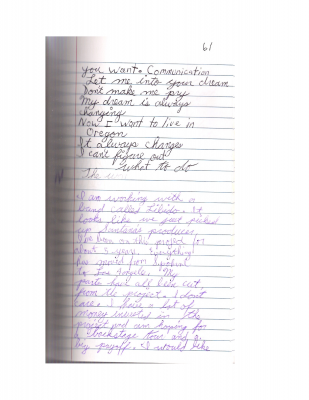 61
you want a Communication
Let me into your dream
Don't make me pry
My dream is always
changing
Now I want to live in
Oregon
It always changes
I can't figure out
what to do
The
I am working with a
band called Libido. It
looks like we just picked
up Santanas producer,
I've been on this project for
about 5 years. Everything
has moved from Spokane
to Los Angeles. My
parts have all been cut
from the project. I dont
care. I have a lot of
money invested in the
project and am hoping for
a backstage tour and
my payoff. I would like